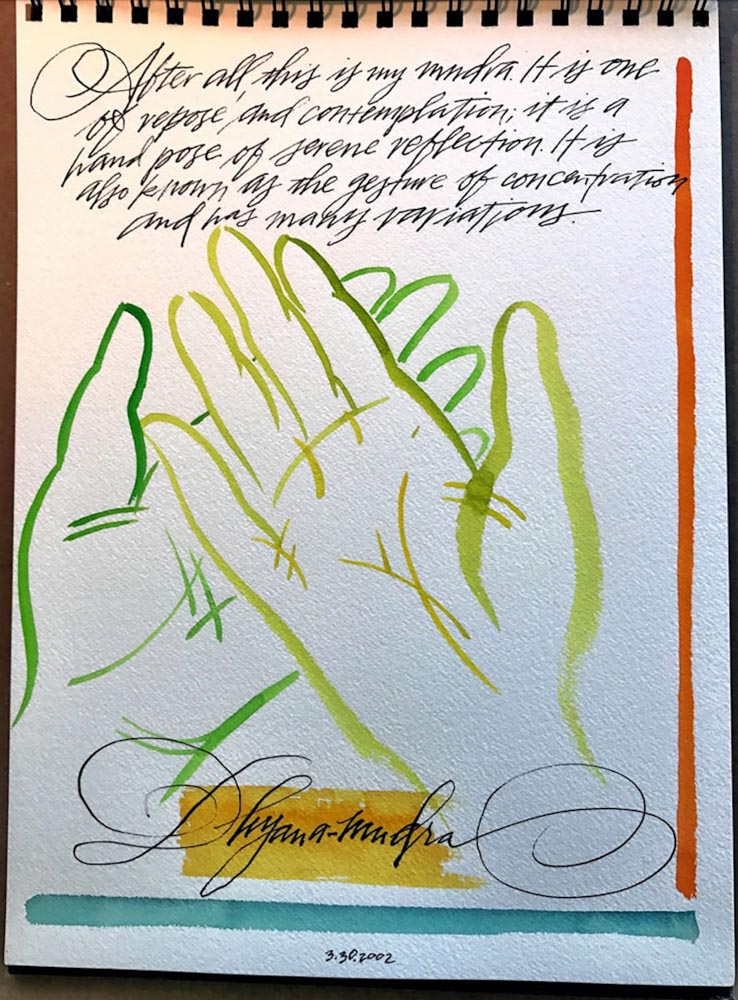 After all, this is my mudra. It is one
of repose and contemplation; it is a
hand pose of serene reflection. It is
also known as the gesture of concentration
and has many variations.
Dhyana-mudra
3.30.2002